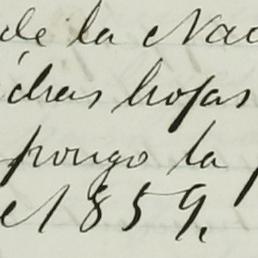 de la Nac
dras hojas
pongo la p
el 1859.